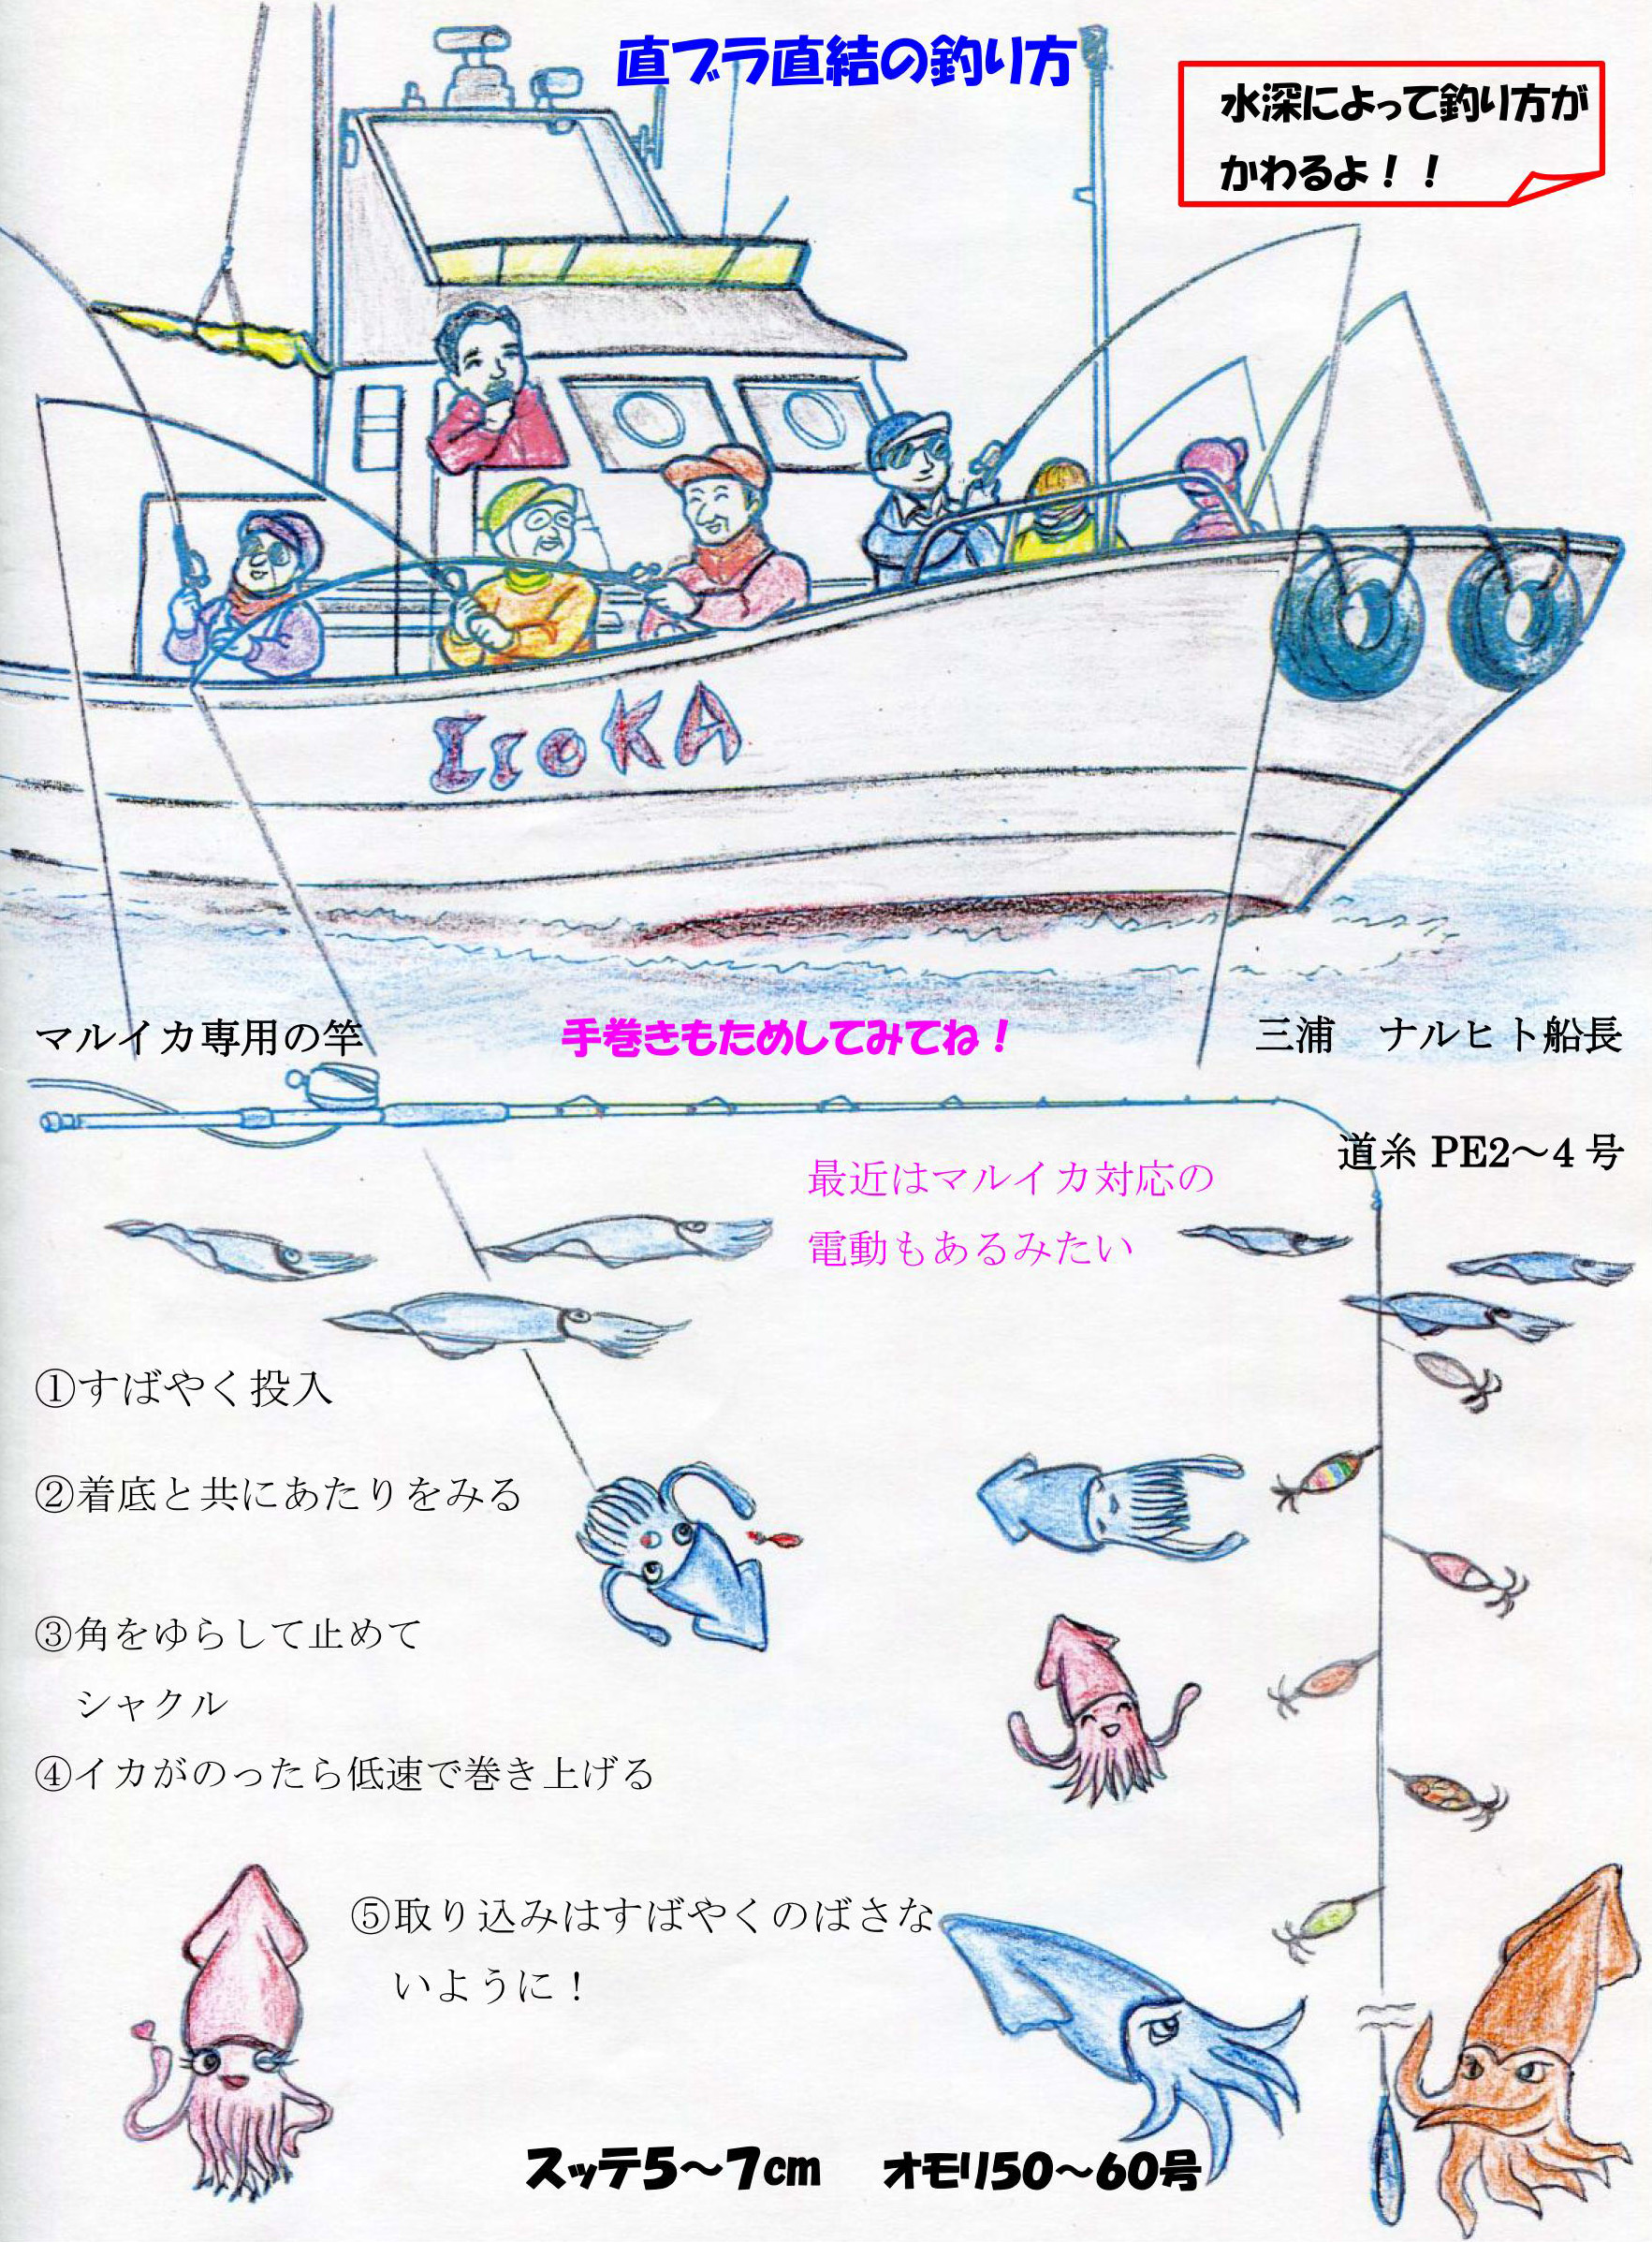 直ブラ直結の釣り方
水深によって釣り方が
かわるよ！！
IroKA
マルイカ専用の竿
手巻きもためしてみてね！
三浦　ナルヒト船長
道糸 PE2～4 号
最近はマルイカ対応の
電動もあるみたい
①すばやく投入
②着底と共にあたりをみる
③角をゆらして止めて
シャクル
④イカがのったら低速で巻き上げる
⑤取り込みはすばやくのばさな
いように！
スッテ5～7cm　オモリ50～60号